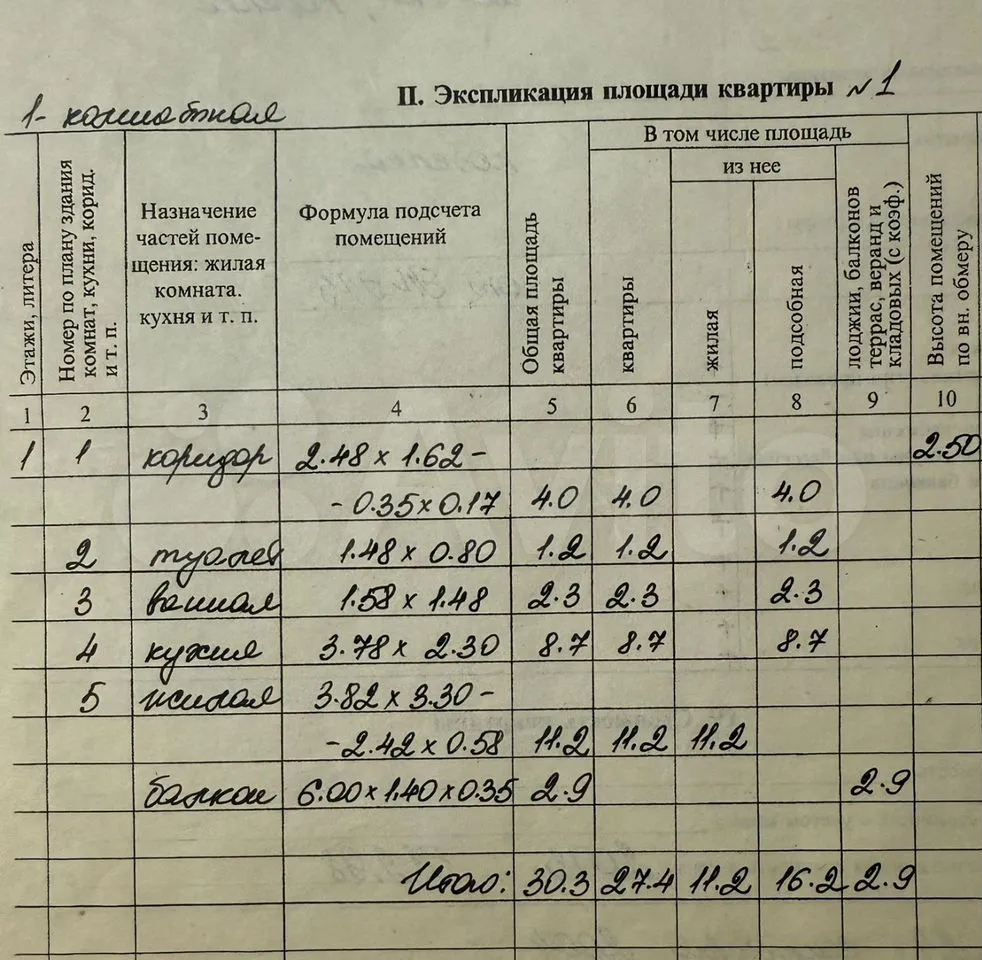 II. Экспликация площади квартиры №1
1-комнатная
Этажи, литера
Номер по плану здания комнат, кухни, корид. и т. п.
Назначение частей поме-щения: жилая комната. кухня и т. п.
Формула подсчета помещений
Общая площадь квартиры
В том числе площадь
из нее
квартиры
жилая
подсобная
лоджии, балконов террас, веранд и кладовых (с коэф.)
Высота помещений по вн. обмеру
1 2 3 4 5 6 7 8 9 10
1 1 коридор 2.48 х 1.62 - 2.50
- 0.35 х 0.17 4.0 4.0 4.0
2 туалет 1.48 х 0.80 1.2 1.2 1.2
3 ванная 1.58 х 1.48 2.3 2.3 2.3
4 кухня 3.78 х 2.30 8.7 8.7 8.7
5 жилая 3.82 х 3.30 -
- 2.42 х 0.58 11.2 11.2 11.2
балкон 6.00 х 1.40 х 0.35 2.9 2.9
Итого: 30.3 27.4 11.2 16.2 2.9
Avito